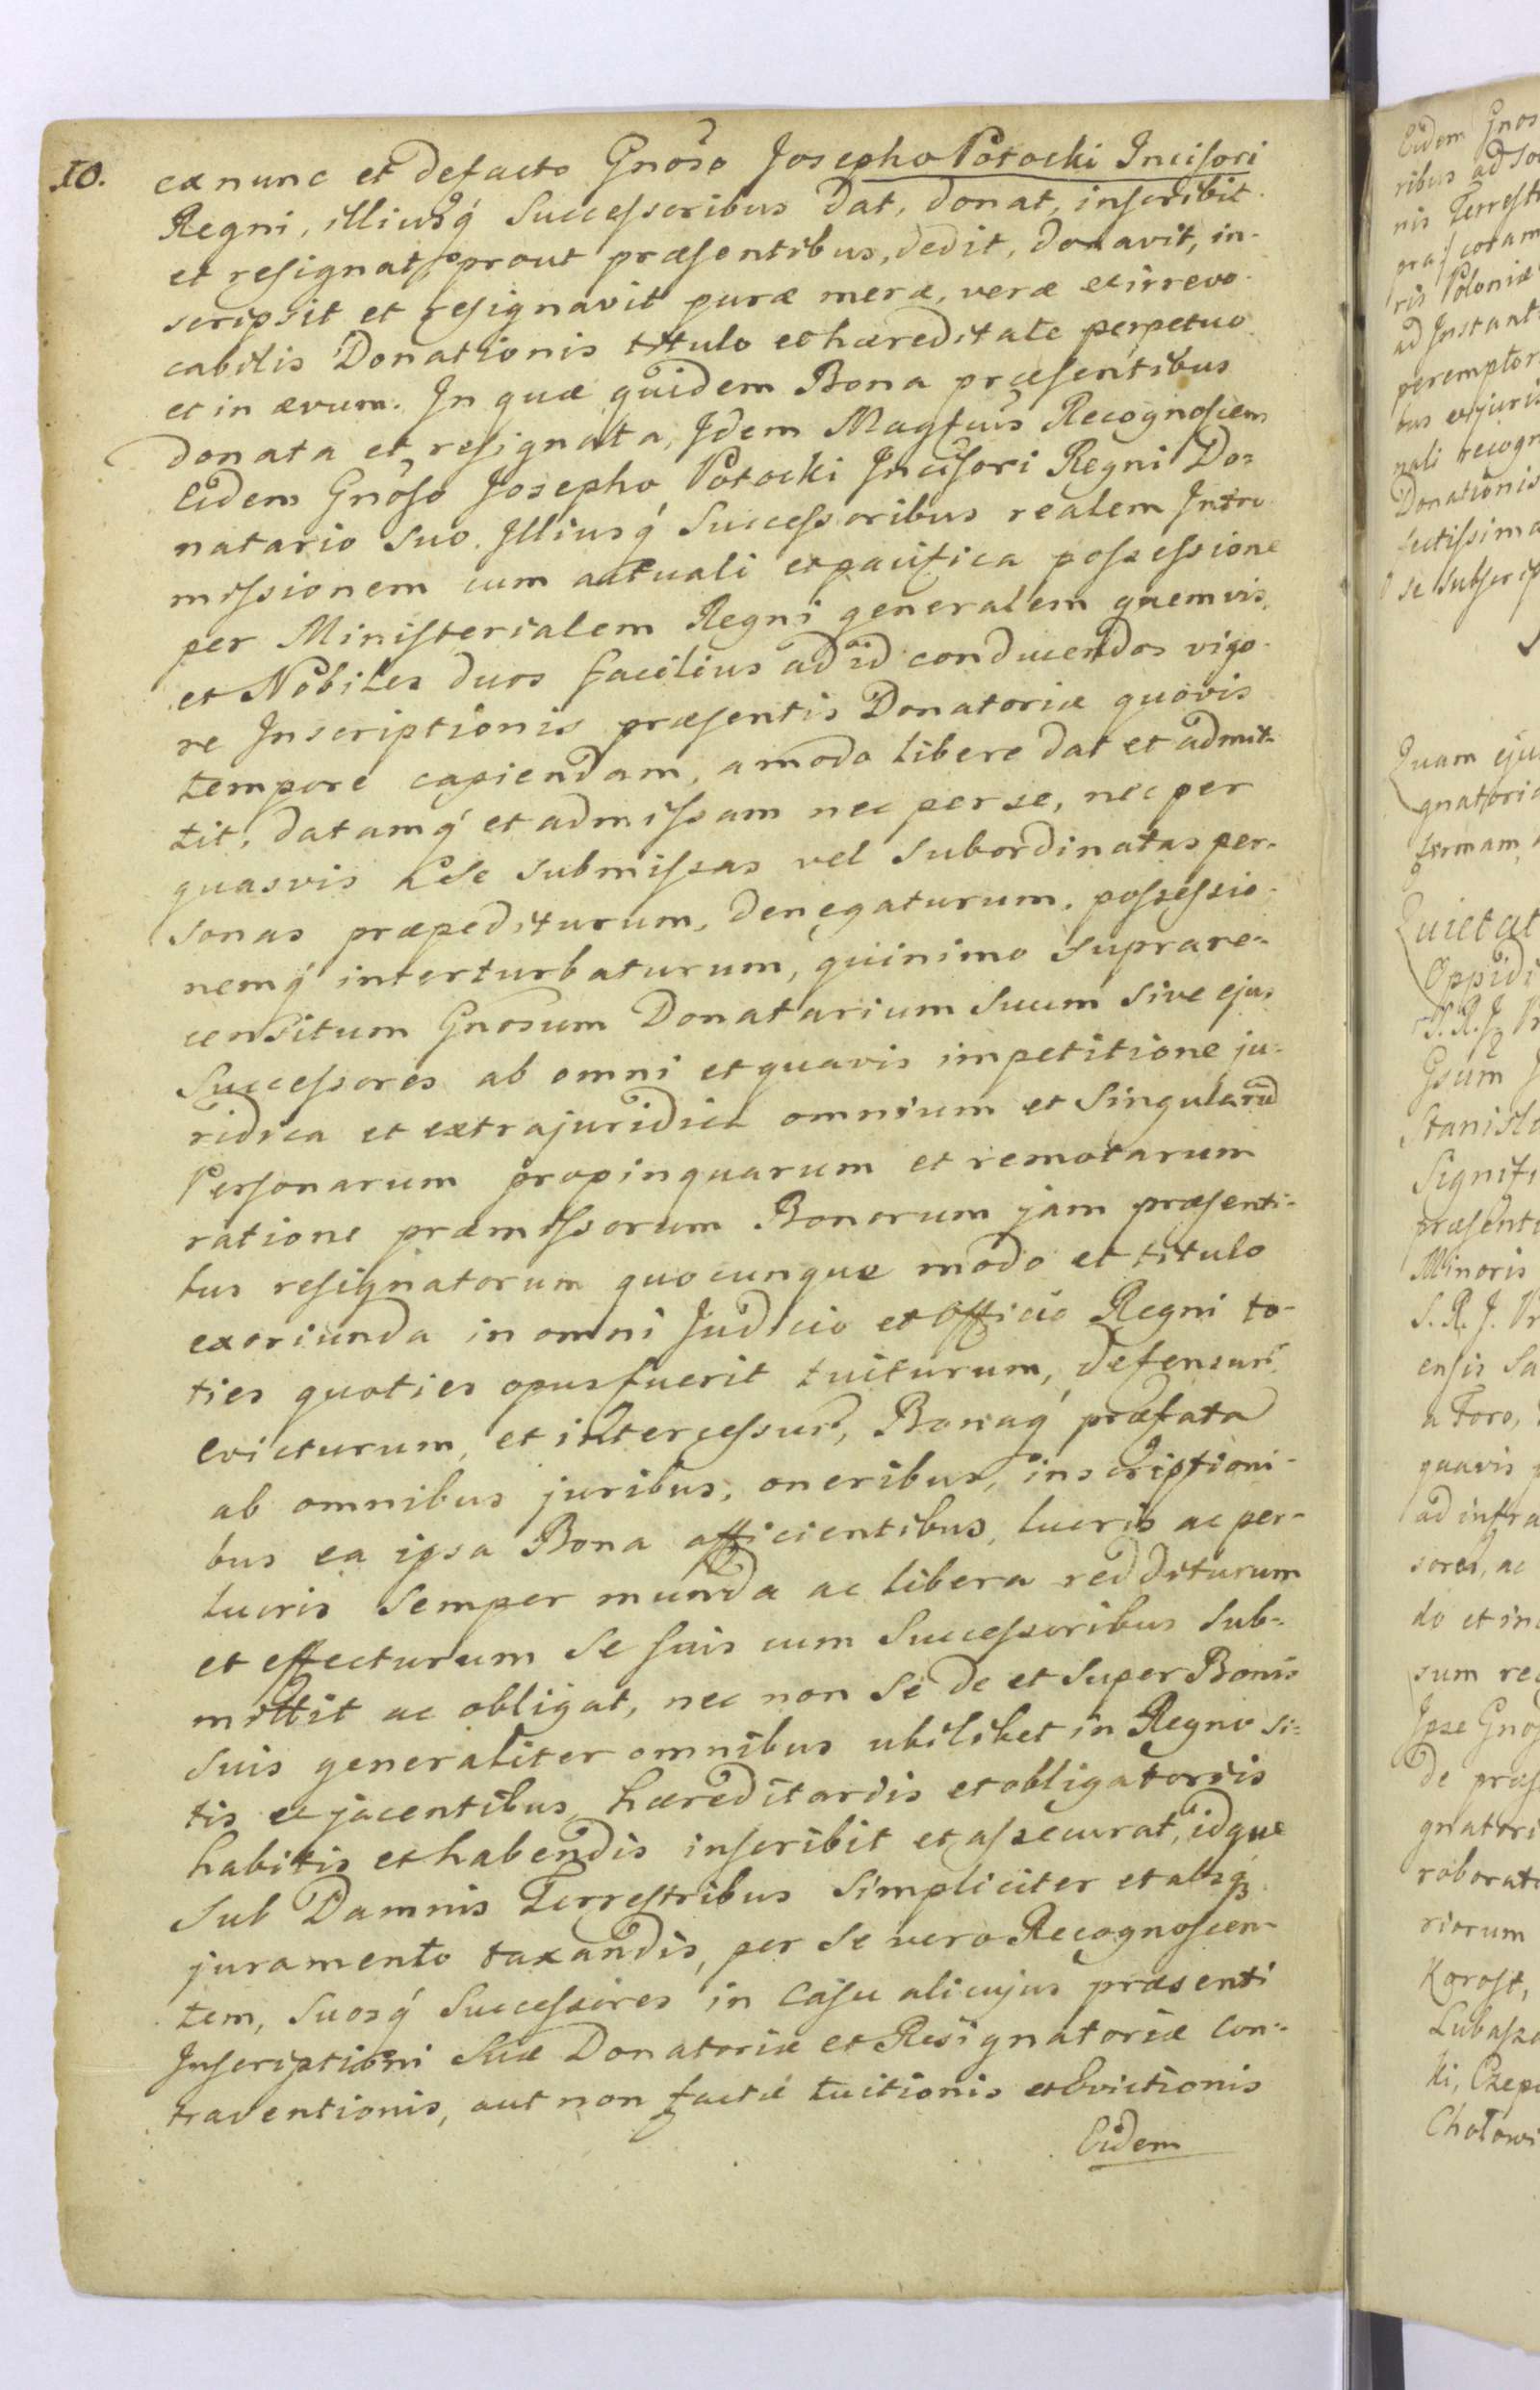 10.
ex nunc et defacto Gnoso Josepho Potocki Incisori
Regni, illiusq́ Successoribus dat, donat, inscribit
et resignat, prout præsentibus, dedit, donavit, in-
scripsit et resignavit puræ meræ, veræ et irrevo-
cabilis Donationis titulo et hæreditate perpetuo
et in ævum. In quæ quidem Bona præsentibus
donata et resignata, Idem Magfcus Recognoscens
Eidem Gnoso Josepho Potocki Incisori Regni Do=
natario suo. Illiusq́ Successoribus realem Intro-
missionem cum actuali et pacifica possessione
per Ministerialem Regni generalem quemvis,
et Nobiles duos facilius ad id conducendos vigo-
re Inscriptionis præsentis Donatoriæ quovis
tempore capiendam, amodo libere dat et admit-
tit, datamq́ et admissam nec per se, nec per
quasvis a se submissas vel subordinatas per-
sonas præpediturum, denegaturum, possessio-
nemq́ interturbaturum, quinimo suprare-
censitum Gnosum Donatarium suum sive ejus
Successores ab omni et quavis impetitione ju-
ridica et extrajuridica omnium et singularũ
Personarum propinquarum et remotarum
ratione præmissorum Bonorum jam præsenti-
bus resignatorum quocunque modo et titulo
exoriunda in omni Judicio et Officio Regni to-
ties quoties opus fuerit tuiturum, defensurũ,
evicturum, et intercessurũ, Bonaq́ præfata
ab omnibus juribus, oneribus, inscriptioni-
bus ea ipsa Bona afficientibus, lucris ac per-
lucris semper munda ac libera redditurum
et effecturum se suis cum Successoribus sub-
mittit ac obligat, nec non se de et super Bonis
suis generaliter omnibus ubilibet in Regno si=
tis et jacentibus, hæreditariis et obligatoriis
habitis et habendis inscribit et assecurat, idque
sub Damnis Terrestribus simpliciter et absq́
juramento taxandis, per se vero Recognoscen-
tem, suosq́ Successores in casu alicujus præsenti
Inscriptioni suæ Donatoriæ et Resignatoriæ con-
traventionis, aut non factæ tuitionis et Evictionis
Eidem
Eidem Gnos
ribus ad so
nis Terrest
coram
ris Poloniæ
ad Instant
perempto
bus et juris
nali recogn
Donationis
fectissima
se subscrip
Quam eju
gnatori
firmam
Quietat
Oppidi
S. R. J. Pr
Gsum J
Stanisla
Signifi
præsenti
Minoris
S. R. J. Pr
ensis Sa
a Foro,
quavis
ad infra
sores, ac
do et in
sum rec
Ipse Gnos
de præs
gnatori
roborat
riorum
Korost,
Lubasz
ki, Czep
Chołowi